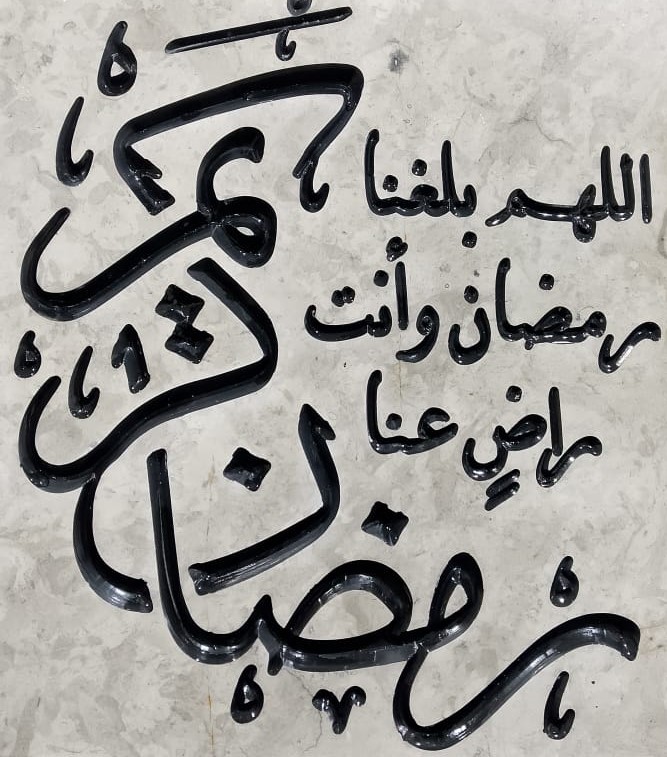 اللهم بلغنا
رمضان وأنت
راضٍ عنا
رمضان كريم